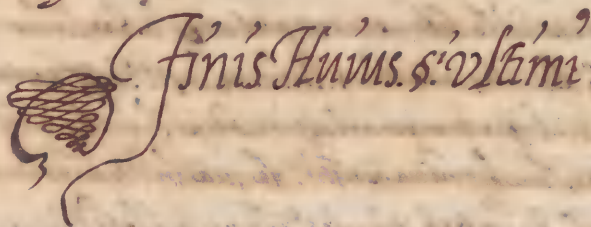 Finis Huius. s: vltimi